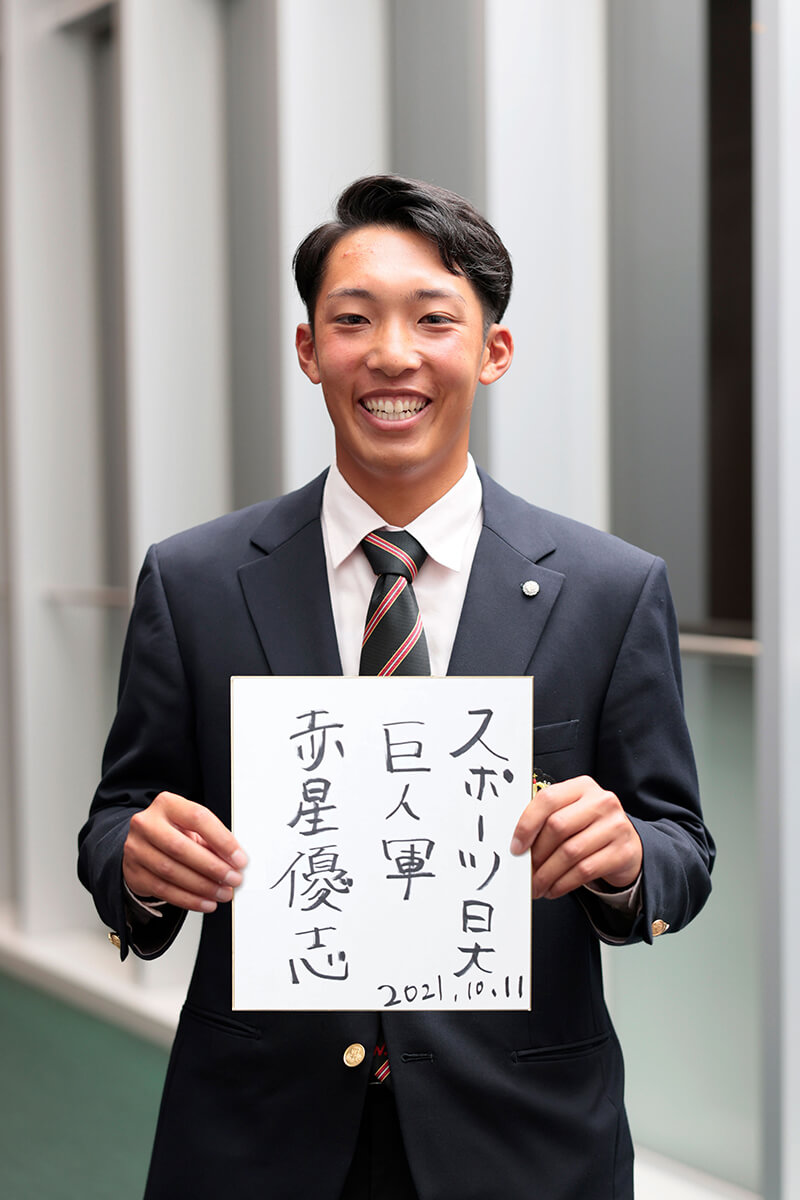 スポーツ日大
巨人軍
赤星優志
2021.10.11